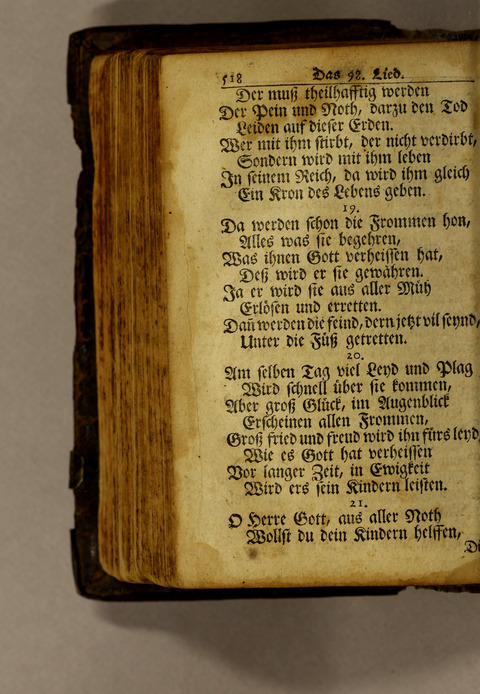 518 Das 98. Lied.
Der muß theilhafftig werden
Der Pein und Noth, darzu den Tod
Leiden auf dieser Erden.
Wer mit ihm stirbt, der nicht verdirbt,
Sondern wird mit ihm leben
In seinem Reich, da wird ihm gleich
Ein Kron des Lebens geben.
19.
Da werden schon die Frommen hon,
Alles was sie begehren,
Was ihnen Gott verheissen hat,
Deß wird er sie gewähren.
Ja er wird sie aus aller Müh
Erlösen und erretten.
Dañ werden die feind, dern jetzt vil seynd,
Unter die Füß getretten.
20.
Am selben Tag viel Leyd und Plag
Wird schnell über sie kommen,
Aber groß Glück, im Augenblick
Erscheinen allen Frommen,
Groß fried und freud wird ihn fürs leyd,
Wie es Gott hat verheissen
Vor langer Zeit, in Ewigkeit
Wird ers sein Kindern leisten.
21.
O Herre Gott, aus aller Noth
Wollst du dein Kindern helffen,